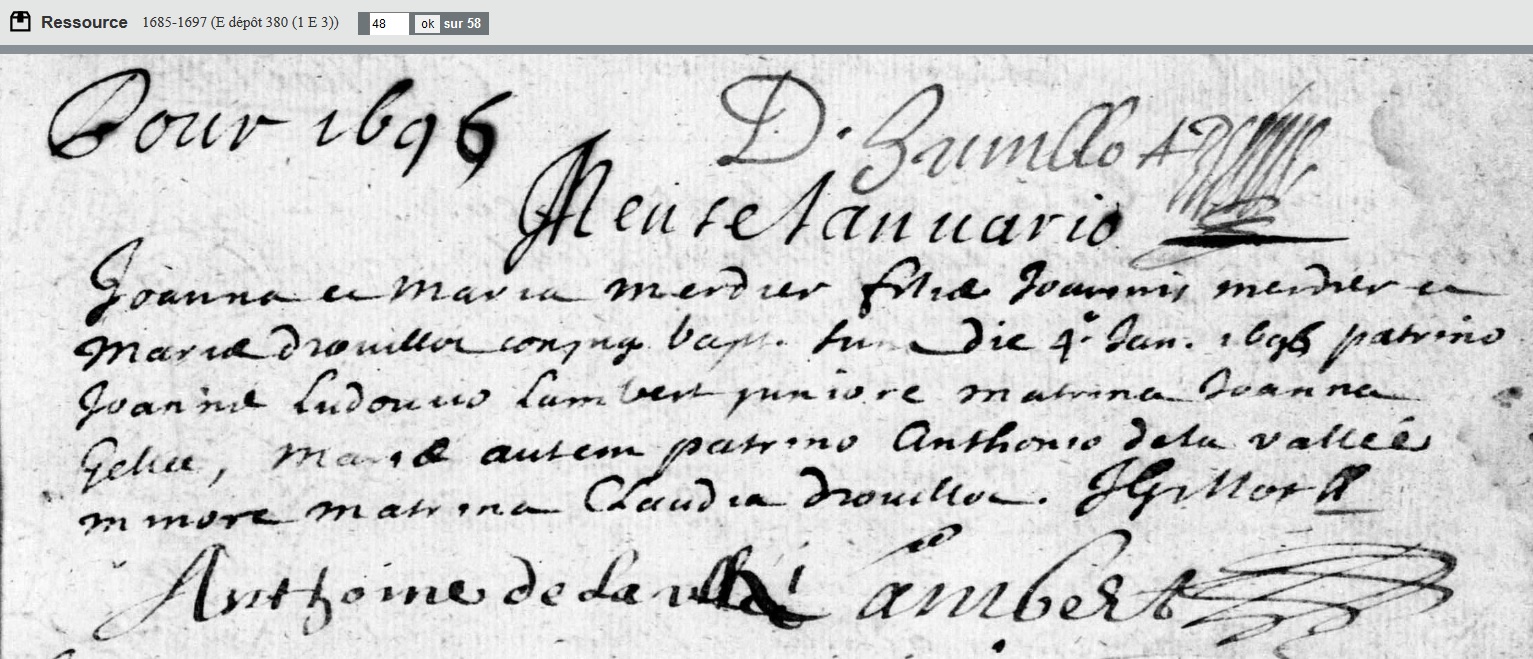 Ressource 1685-1697 (E dépôt 380 (1 E 3)) 48 ok sur 58
Pour 1696
Mense Januario
Joanna et Maria merdier filiæ Joannis merdier et
Mariæ drouillot conjug. bapt. sunt die 4ª Jan. 1696 patrino
Joanne Ludovico Lambert juniore matrina Joanna
Gellée, Mariæ autem patrino Anthonio dela vallée
minore matrina Claudia drouillot. JGillot
Anthoine de la Lambert